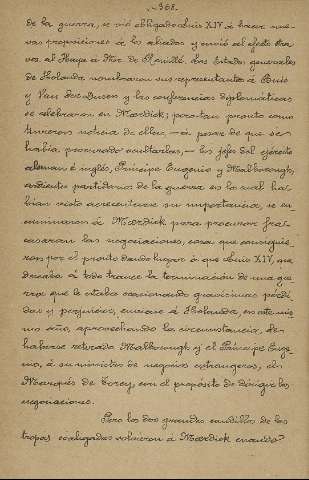 - 368 -
de la guerra, se vió obligado Luis XIV á hacer nue-
vas proposiciones á los aliados y envió al efecto
al Haya á Mor de Rouillé. Los Estados generales
de Holanda nombraron sus representantes á Buis
y Van der Dusen y las conferencias diplomáticas
se celebraron en Mœrdick; pero tan pronto como
tuvieron noticia de ellas, - á pesar de que se
había procurado ocultarlas, - los jefes del ejército
aleman é inglés, Príncipe Eugenio y Malborough,
ardientes partidarios de la guerra en la cual ha-
bían visto acrecentarse su importancia, se en-
caminaron á Mœrdick para procurar fra-
casaran las negociaciones, cosa que consiguie-
ron por el pronto dando lugar á que Luis XIV, que
deseaba á todo trance la terminación de una gue-
rra que le estaba ocasionando gravísimas pérdi-
das y perjuicios, enviase á Holanda, en este mis-
mo año, aprovechando la circunstancia de
haberse retirado Malborough y el Príncipe Euge-
nio, á su ministro de negocios extrangeros, el
Marqués de Torcy, con el propósito de dirigir las
negociaciones.
Pero los dos grandes caudillos de las
tropas coaligadas volvieron á Mœrdick